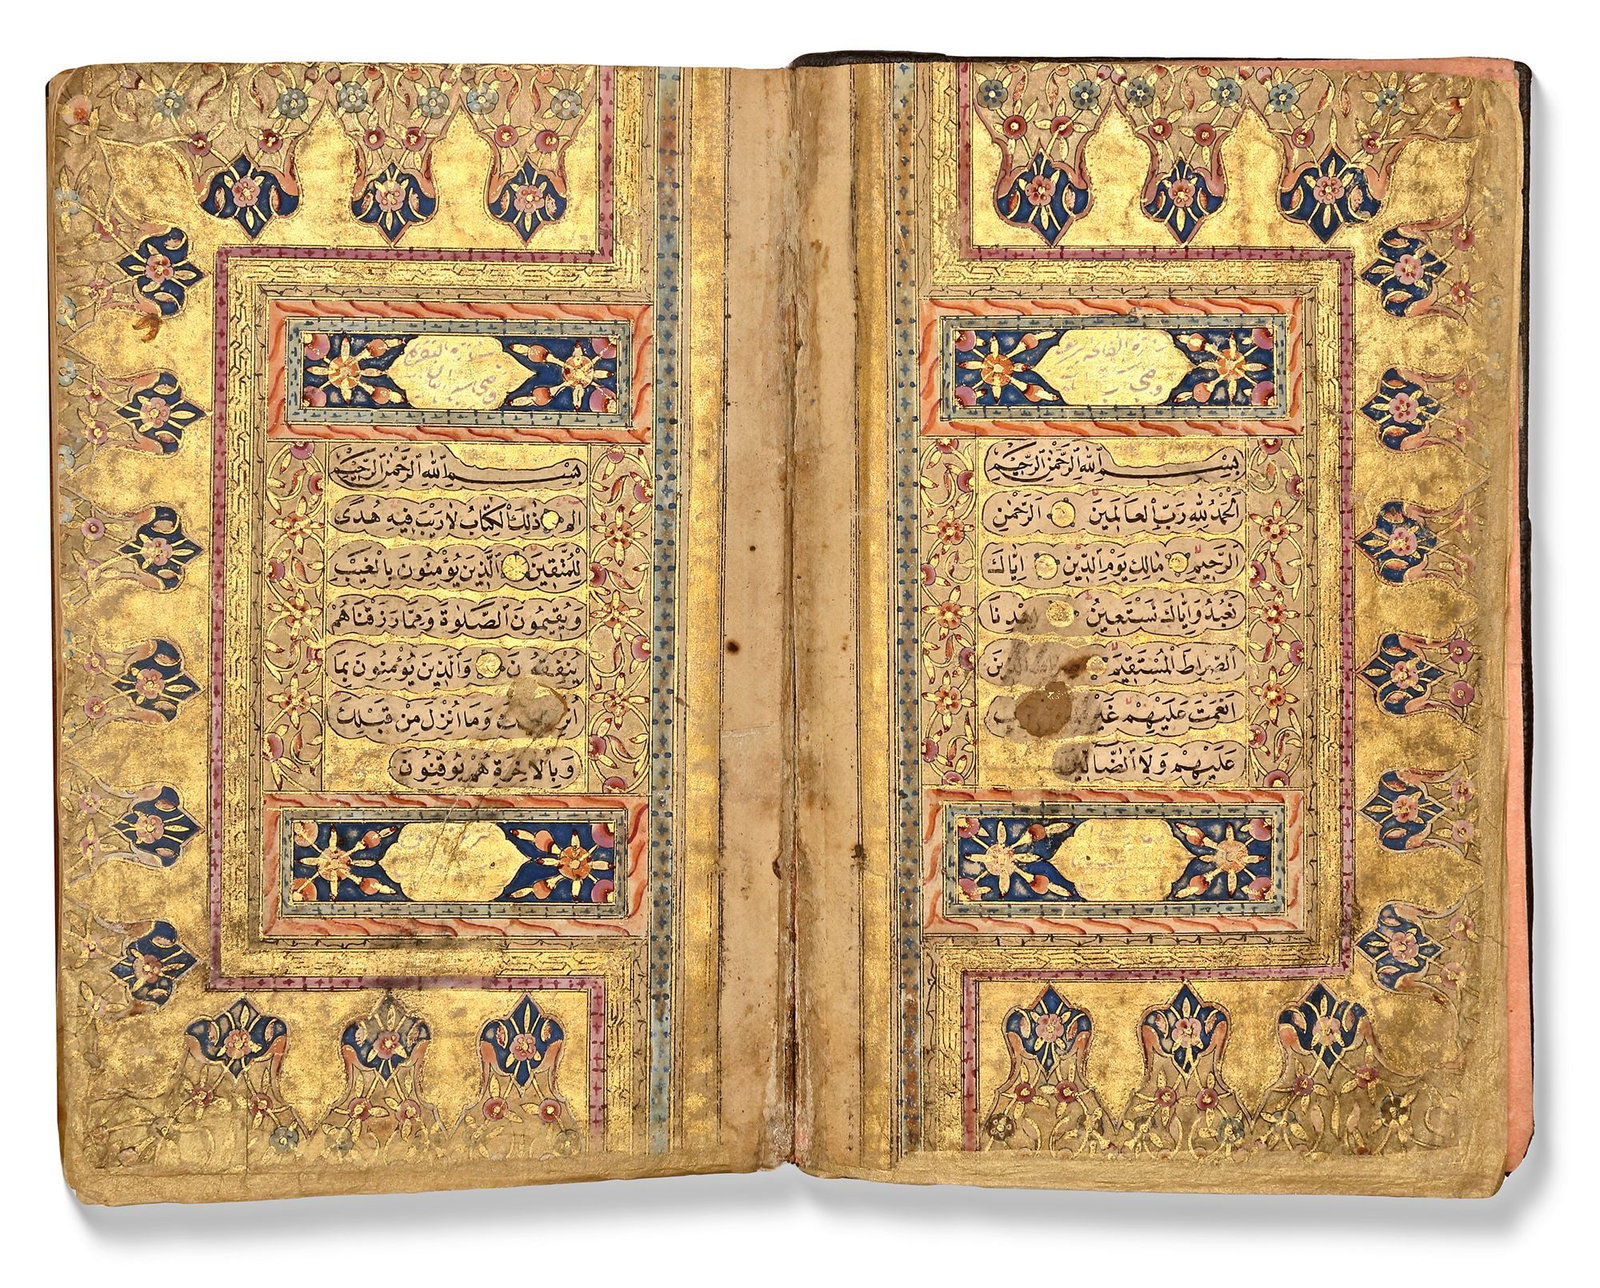 سورة الفاتحة سبع
وهي
بسم الله الرحمن الرحيم
الحمد لله رب العالمين الرحمن
الرحيم مالك يوم الدين اياك
نعبد واياك نستعين اهدنا
الصراط المستقيم
انعمت عليهم
عليهم ولا الضالين
سورة البقرة
وهي
بسم الله الرحمن الرحيم
الم ذلك الكتاب لا ريب فيه هدى
للمتقين الذين يؤمنون بالغيب
ويقيمون الصلوة ومما رزقناهم
ينفقون والذين يؤمنون بما
وما انزل من قبلك
وبالاخرة هم يوقنون